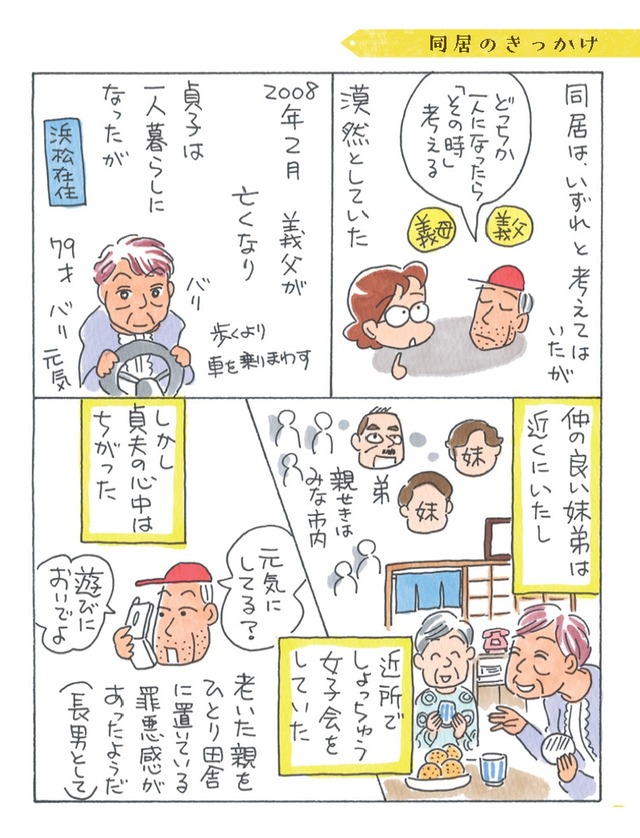 同居のきっかけ
同居は、いずれと考えては
いたが
どっちか
一人になったら
「その時」
考える
義父
義母
漠然としていた
2008
年2月 義父が
亡くなり
貞子は
一人暮らしに
なったが
浜松在住
79才
バリ
バリ
元気
歩くより
車を乗りまわす
仲の良い妹弟は
近くにいたし
妹
妹
弟
親せきは
みな市内
近所で
しょっちゅう
女子会を
していた
しかし
貞夫の心中は
ちがった
元気に
してる?
遊びに
おいでよ
老いた親を
ひとり田舎
に置いている
罪悪感が
あったようだ
(長男として)